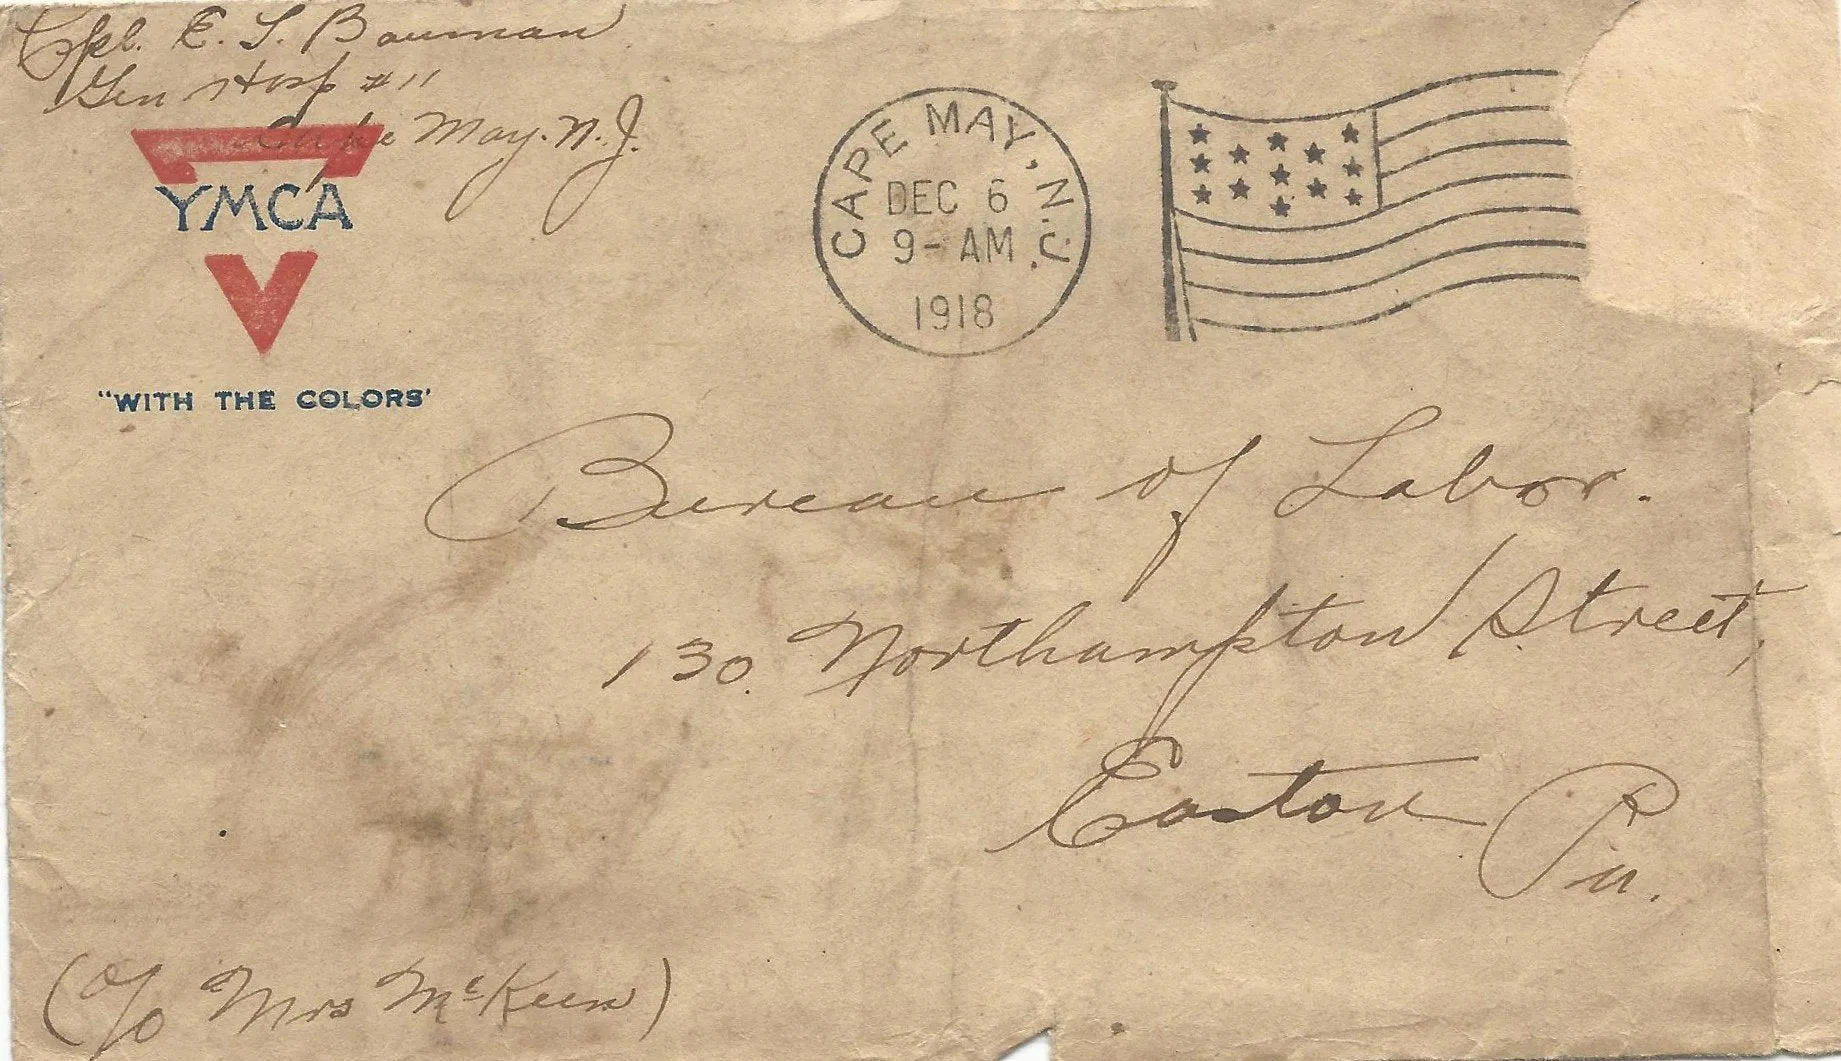 Cpl. E. S. Bauman
Gen Hosp #11
Cape May. N. J.
YMCA
"WITH THE COLORS'
CAPE MAY, N.J.
DEC 6
9- AM
1918
Bureau of Labor.
130. Northampton Street,
Easton Pa.
(c/o Mrs McKeen)